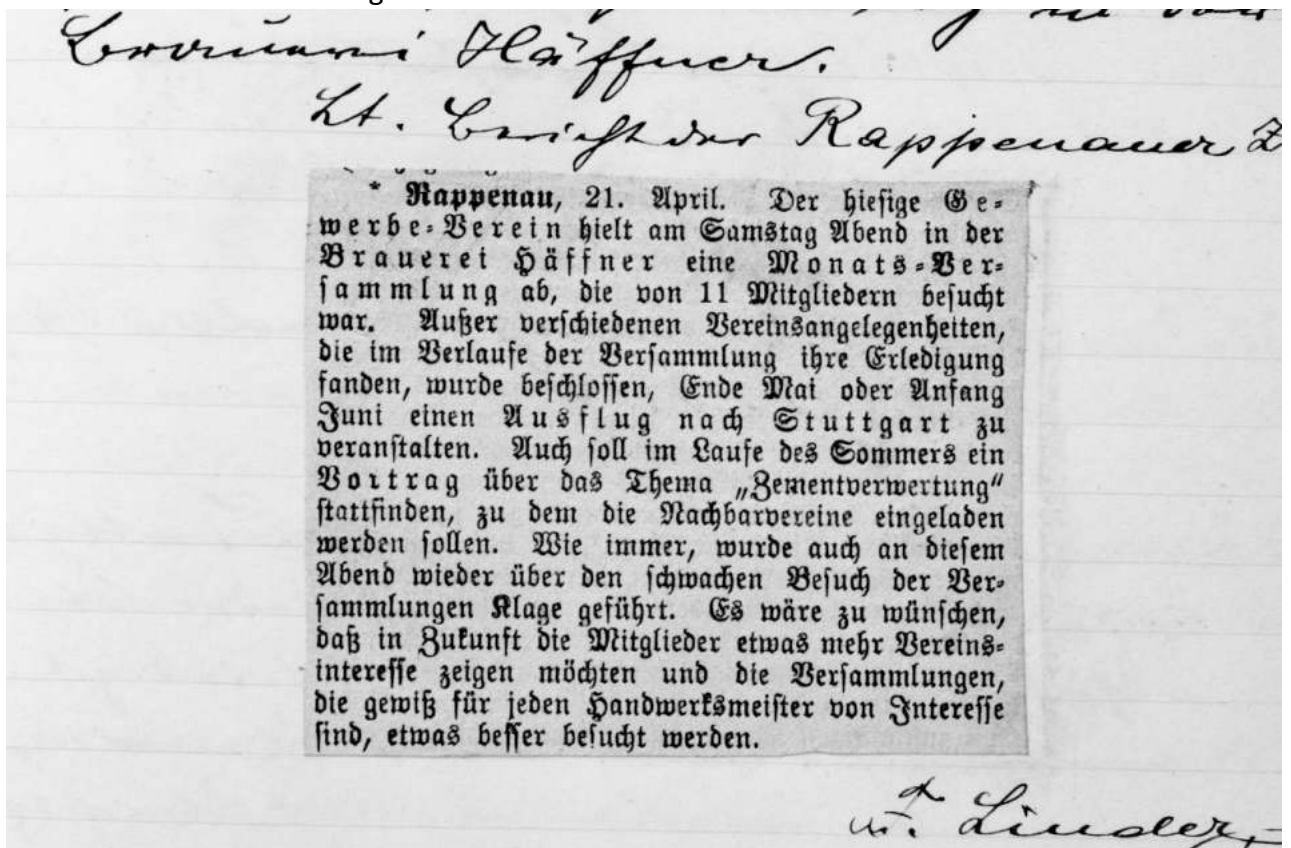 Brauerei Häffner.
Lt. Bericht der Rappenauer Z
* Rappenau, 21. April. Der hiesige Ge-
werbe-Verein hielt am Samstag Abend in der
Brauerei Häffner eine Monats-Ver-
sammlung ab, die von 11 Mitgliedern besucht
war. Außer verschiedenen Vereinsangelegenheiten,
die im Verlaufe der Versammlung ihre Erledigung
fanden, wurde beschlossen, Ende Mai oder Anfang
Juni einen Ausflug nach Stuttgart zu
veranstalten. Auch soll im Laufe des Sommers ein
Vortrag über das Thema „Zementverwertung“
stattfinden, zu dem die Nachbarvereine eingeladen
werden sollen. Wie immer, wurde auch an diesem
Abend wieder über den schwachen Besuch der Ver-
sammlungen Klage geführt. Es wäre zu wünschen,
daß in Zukunft die Mitglieder etwas mehr Vereins-
interesse zeigen möchten und die Versammlungen,
die gewiß für jeden Handwerksmeister von Interesse
sind, etwas besser besucht werden.
Linder